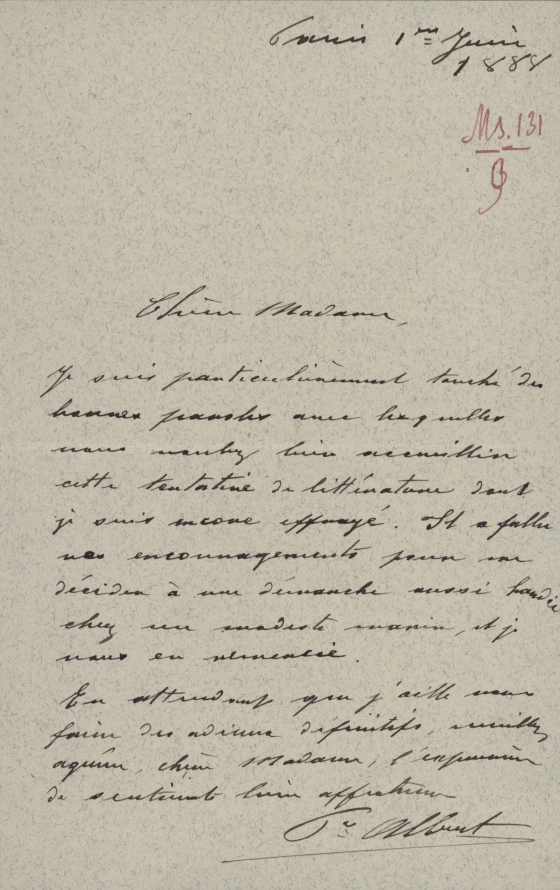 Paris 1er Juin
1888
Ms. 131
9
Chère Madame,
Je suis particulièrement touché des
bonnes paroles avec lesquelles
vous voulez bien accueillir
cette tentative de littérature dont
je suis encore effrayé. Il a fallu
vos encouragements pour me
décider à une démarche aussi hardie
chez un modeste marin, et je
vous en remercie.
En attendant que j'aille vous
faire des adieux définitifs, veuillez
agréer, chère Madame, l'expression
de sentiments bien affectueux
Pce Albert